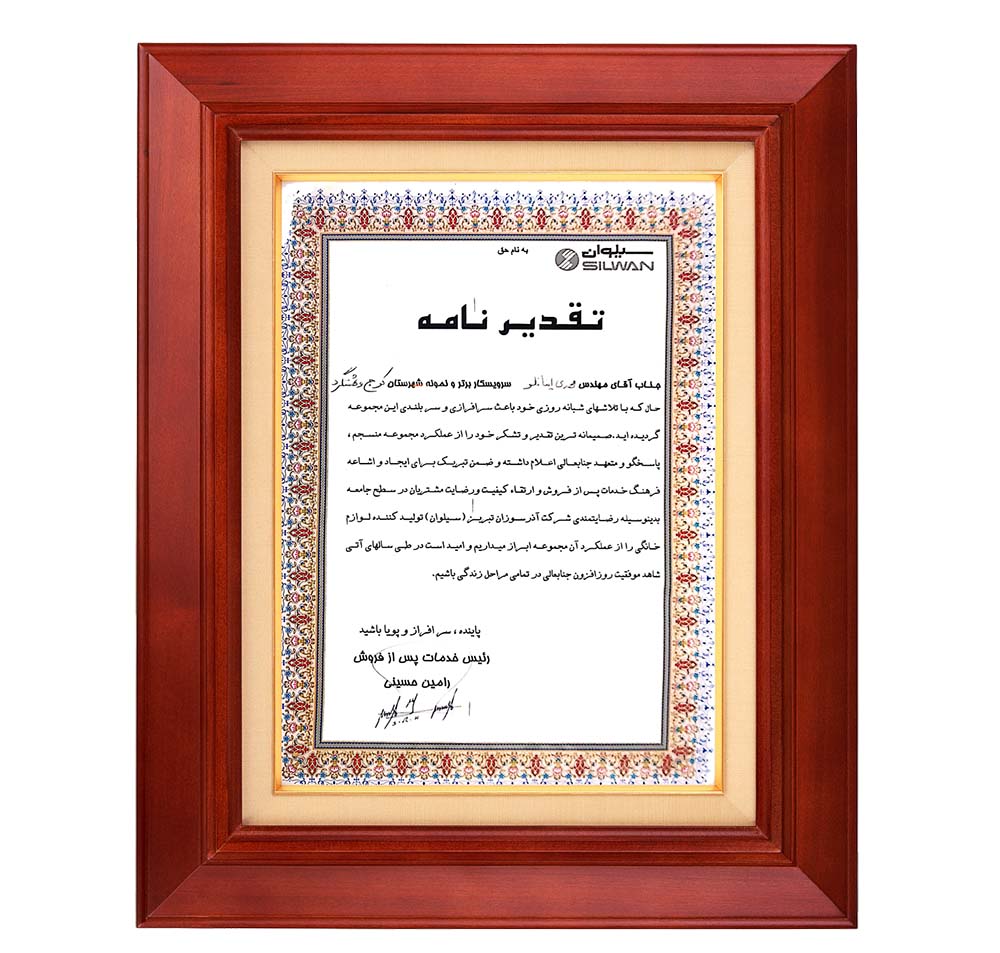 به نام حق
سیلوان
SILWAN
تقدیر نامه
جناب آقای مهندس سرویسکار برتر و نمونه شهرستان کرج و هشتگرد
حال که با تلاشهای شبانه روزی خود باعث سرافرازی و سر بلندی این مجموعه
گردیده اید.صمیمانه ترین تقدیر و تشکر خود را از عملکرد مجموعه منسجم ،
پاسخگو و متعهد جنابعالی اعلام داشته و ضمن تبریک برای ایجاد و اشاعه
فرهنگ خدمات پس از فروش و ارتقاء کیفیت ورضایت مشتریان در سطح جامعه
بدینوسیله رضایتمندی شرکت آذرسوزان تبریز (سیلوان) تولید کننده لوازم
خانگی را از عملکرد آن مجموعه ابراز میداریم و امید است در طی سالهای آتی
شاهد موفقیت روزافزون جنابعالی در تمامی مراحل زندگی باشیم.
پاینده ، سر افراز و پویا باشید
رئیس خدمات پس از فروش
رامین حسینی